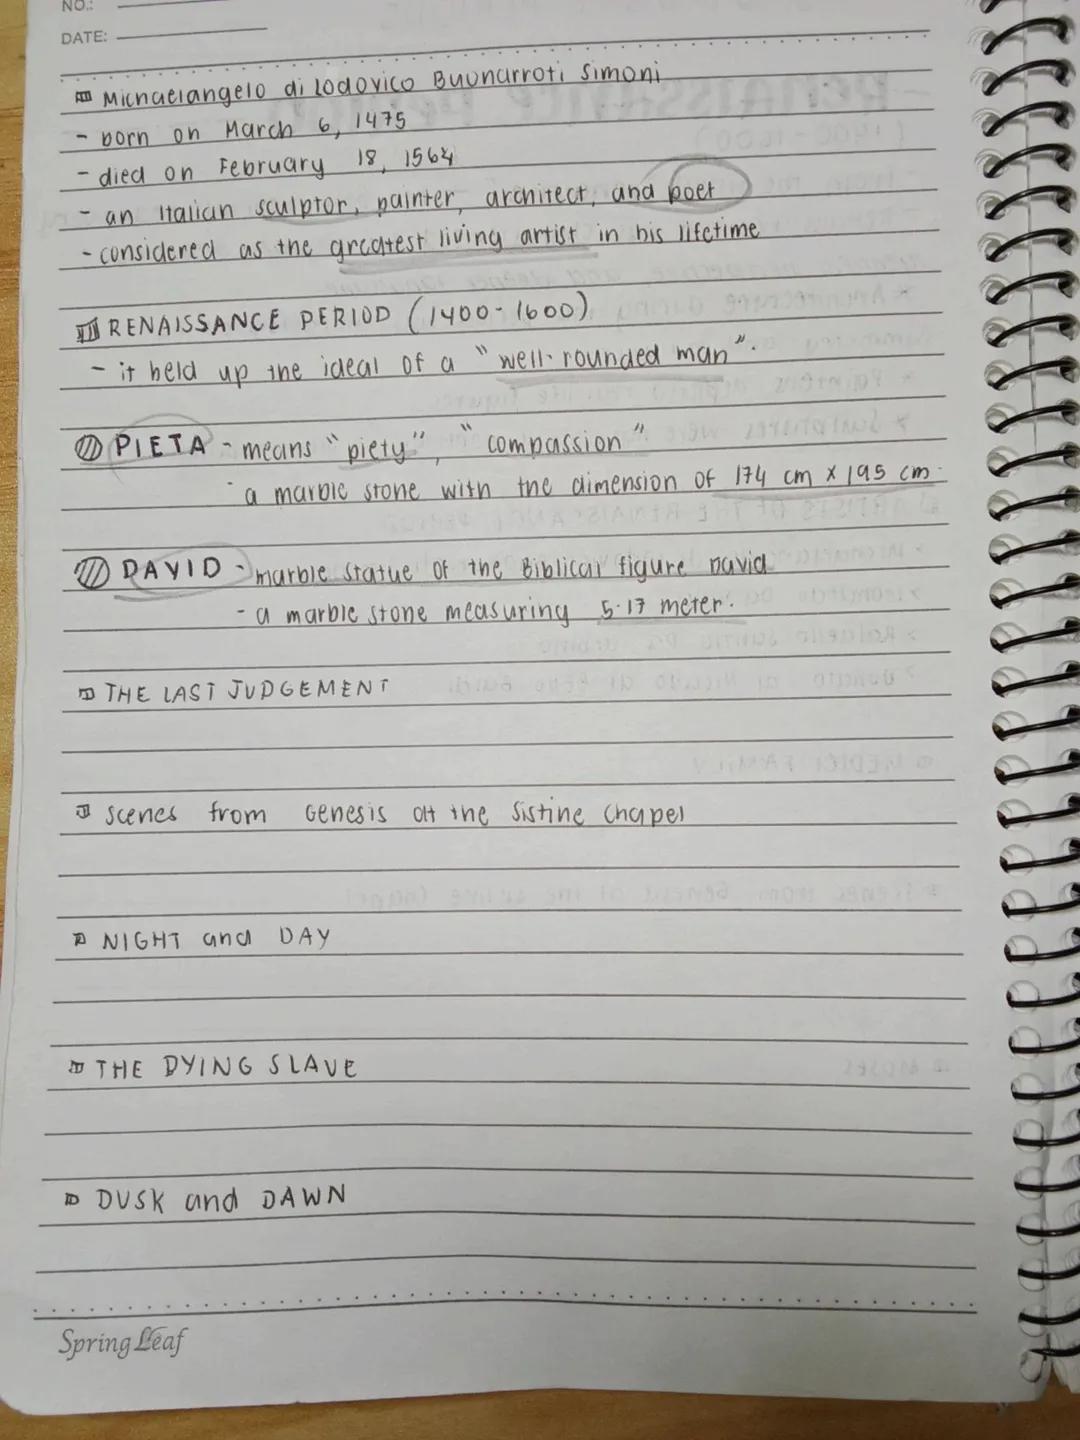 NO.:
DATE:
Michaelangelo di Lodovico Buonarroti Simoni
- born on March 6, 1475
- died on February 18, 1564
- an Italian sculptor, painter, architect, and poet
- considered as the greatest living artist in his lifetime
RENAISSANCE PERIOD (1400-1600)
- it held up the ideal of a "well-rounded man".
PIETA - means "piety", "compassion"
- a marble stone with the dimension of 174 cm x 195 cm.
DAVID - marble statue of the Biblical figure David
- a marble stone measuring 5.17 meter.
THE LAST JUDGEMENT
Scenes from Genesis at the Sistine Chapel
NIGHT and DAY
THE DYING SLAVE
DUSK and DAWN
Spring Leaf